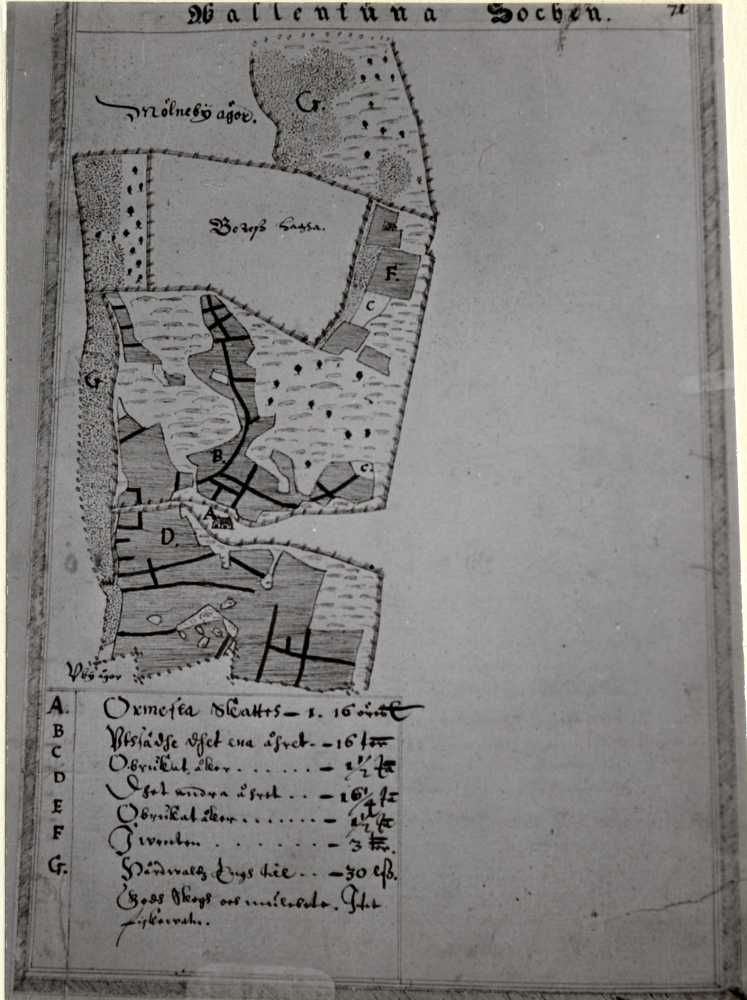 Wallentuna Sochen. 71
Mölneby ägor.
G.
Beteß hagha.
F.
C
G
B.
C.
A
D.
Vby ägor
A. Ormesta Skattes — 1. 16
B Vtsädhe dhet ena åhret. — 16
C Obrukat åker . . . . . . — 1 1/2
D Dhet andra åhret . . — 16 1/4
E Obrukat åker . . . . . . . — 1 1/2
F J wreten . . . . . . . — 3
G. Hårdwaldz Engs till . . — 30 lß.
Godh Skogh och mulebete. Jtet
fiskewatn.